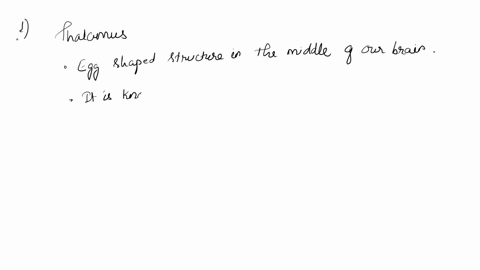 1) Thalamus
• Egg shaped structure in the middle of our brain.
• It is kno